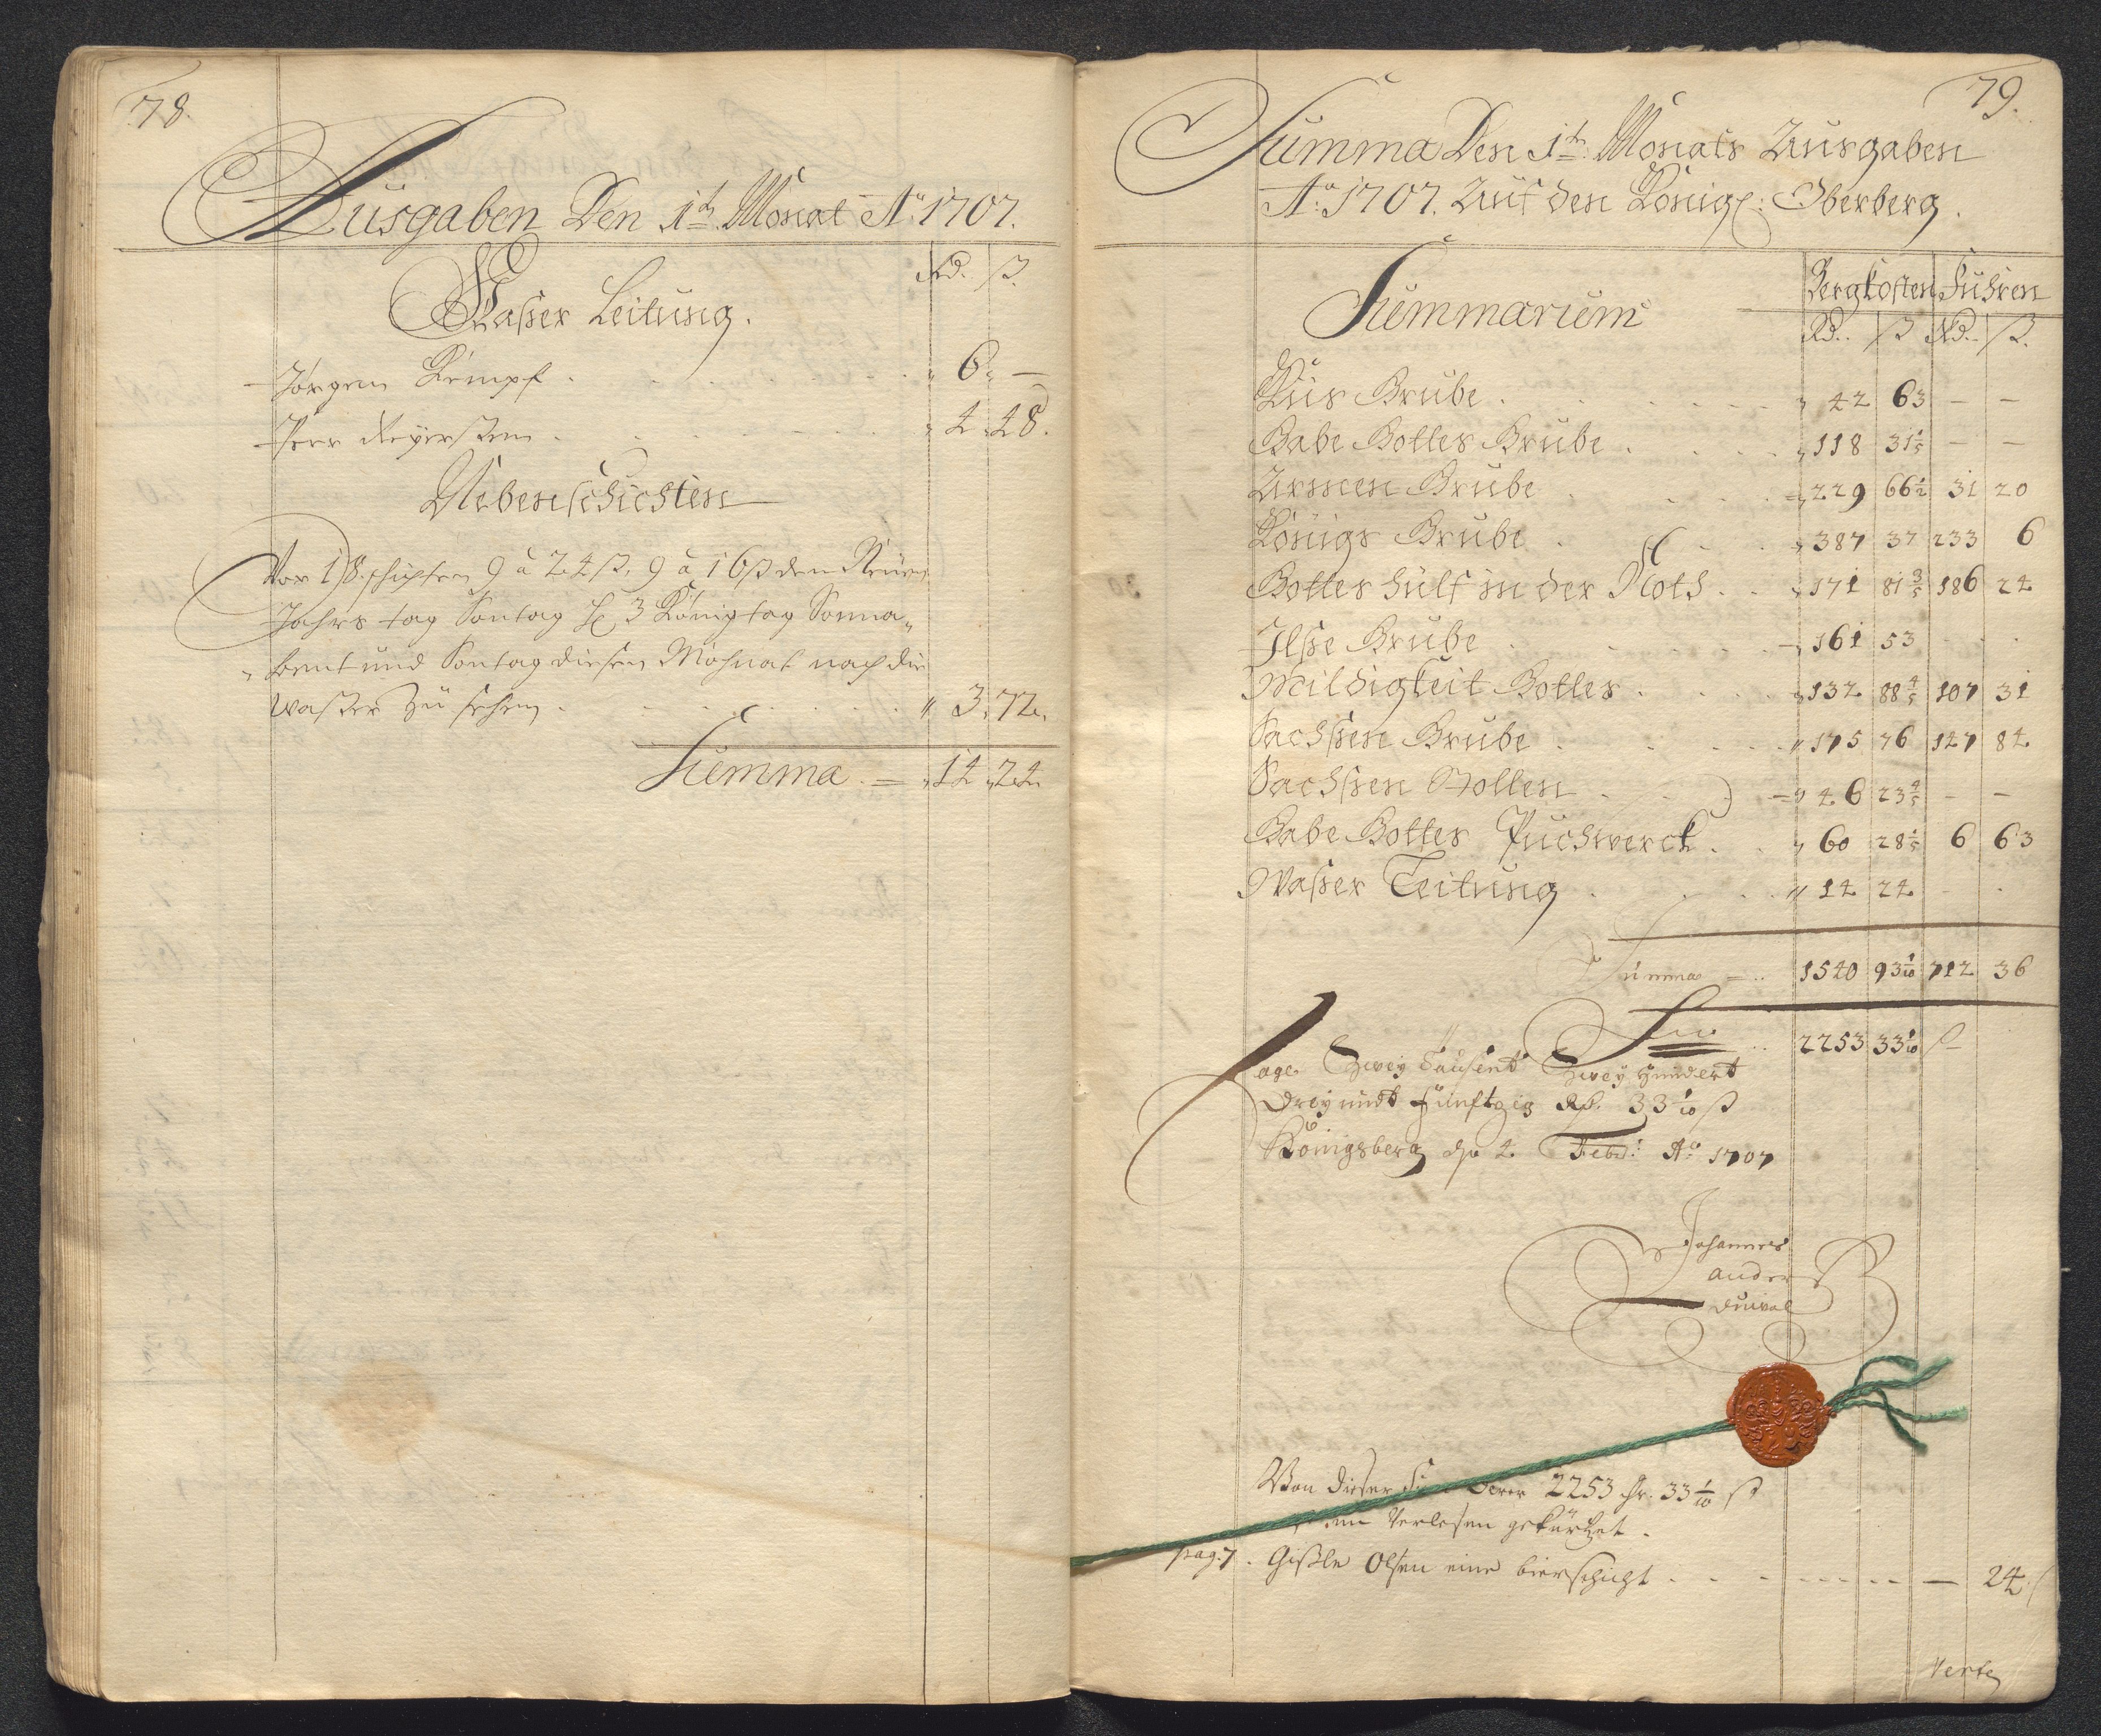 78.
Ausgaben Den 1t. Monat Ao 1707.
Rd. ß.
Waßer Leitung.
Jörgen Kempf . . . . . . . . " 6 " —
Peer Reyersten . . . . . . . " 2 " 48.
Nebenschichten
Vor 18 schichten 9 à 24 ß, 9 à 16 ß den Neuen
Jahrs tag Sontag H. 3 König tag Sonna„
„bent und Sontag diesen Mohnat nach die
waßer zu sehen . . . . . . " 3 " 72.
Summa = " 12 " 24.
79.
Summa Den 1t. Monats Ausgaben
Ao: 1707. Auf den Königl: Oberberg.
Summarum
Bergkosten Fuhren
Rd. ß Rd. ß.
Grube . . . . . " 42 63 — —
Gabe Gottes Grube . . . . " 118 31 1/5 — —
Armen Grube . . . . = " 229 66 1/2 31 20
Königs Grube . . . . " 387 37 233 6
Gottes hülf in der Noth . . " 171 81 3/5 186 24
Ilße Grube . . . . — " 161 53 . .
Mildigkeit Gottes . . . . " 132 88 4/5 107 31
Sachsen Grube . . . . " 175 76 147 84
Sachsen Stollen . . . = " 46 23 4/5 — —
Gabe Gottes Puchwerck . . " 60 28 1/5 6 63
Waßer Leitung . . . . " 14 24 . .
Summa = . . 1540 93 1/10 712 36
2253 33 1/10 ß
Sage Zwey Tausent Zwey Hundert
Drey undt Fünftzig Rd. 33 1/10 ß
Königsberg d. 2 Feb: Ao 1707
Johannes
ander
Von dieser derer 2253 Rd. 33 1/10 ß
Verlesen gekürtzet.
pag. 7. Gißle Olsen eine bierschicht . . . — 24 ß
Verte